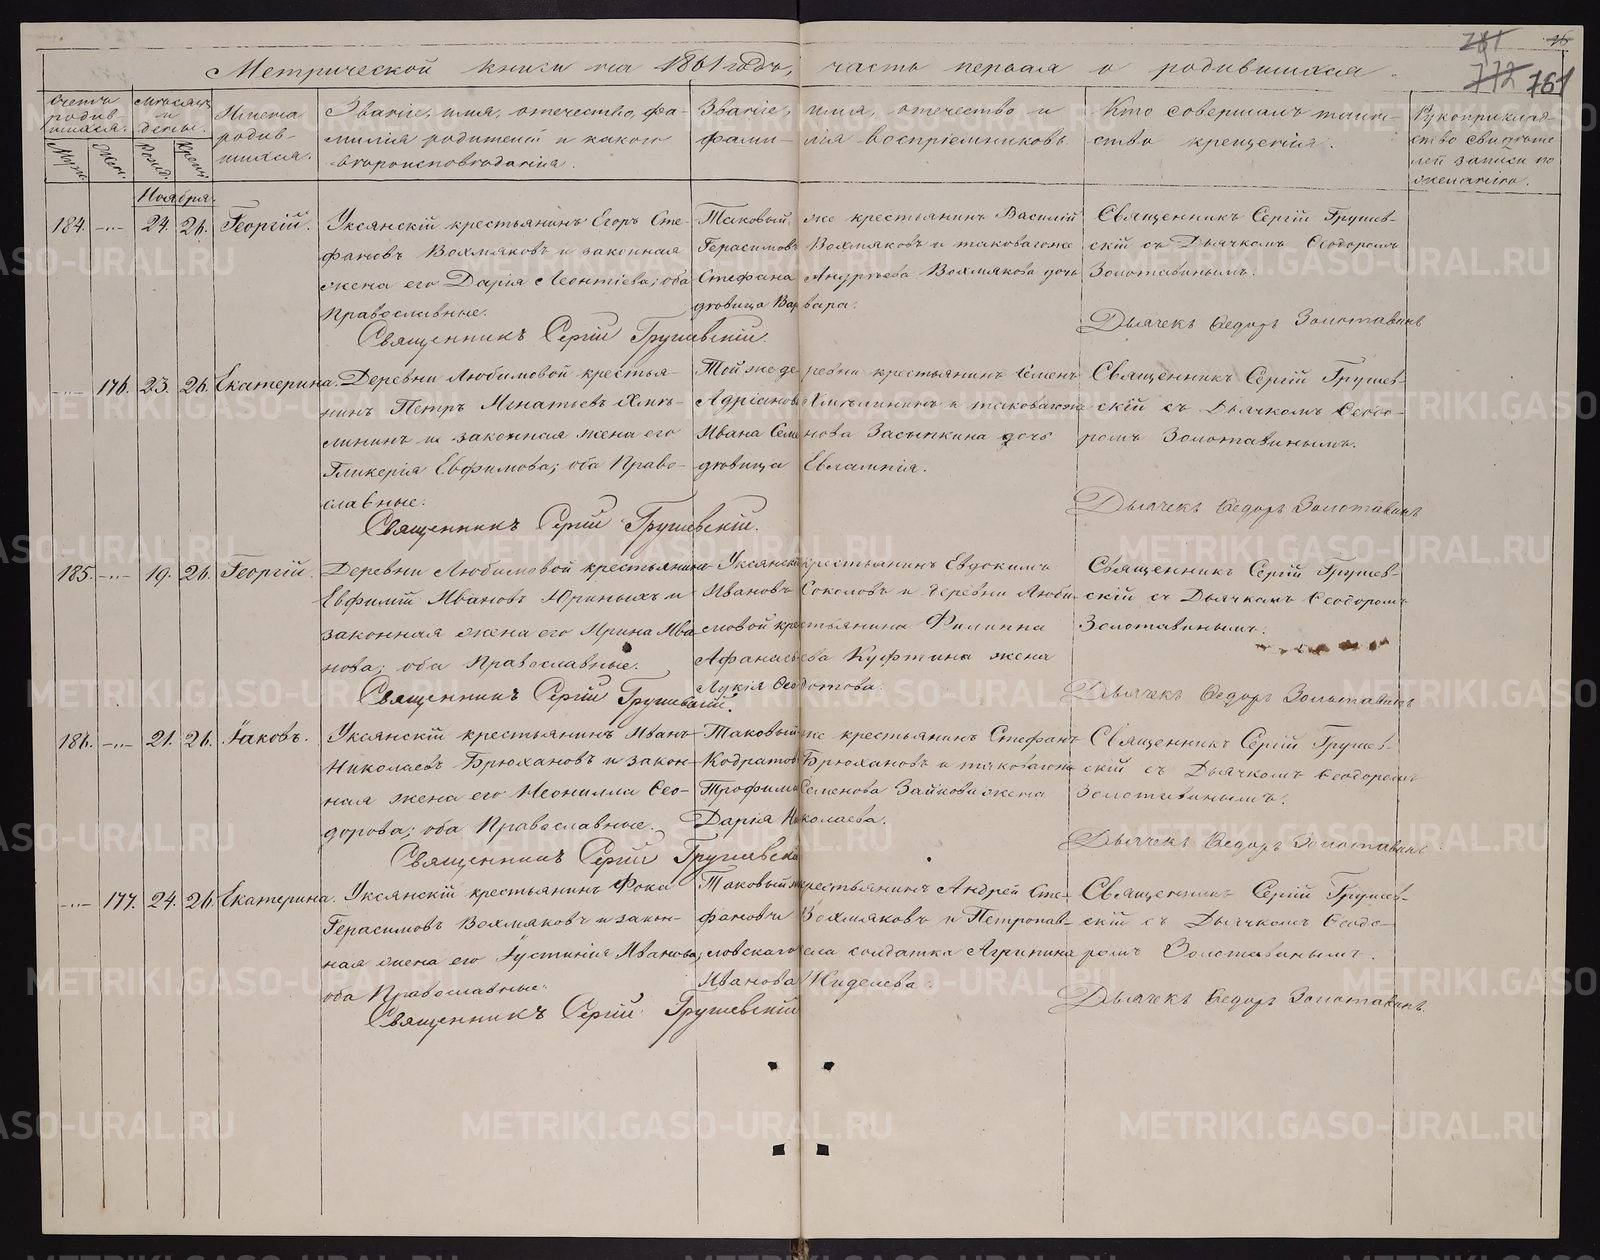 781 16
772 761
Метрической книги на 1861 годъ, часть первая о родившихся.
Счетъ родив- шихся.
Муж. Жен.
Мѣсяцъ и день.
Рожд. Крещ.
Имена родив- шихся.
Званіе, имя, отечество, фа-
милія родителей и какого
вѣроисповѣданія.
Званіе, имя, отечество и
фами- лія воспріемниковъ
Кто совершалъ таин-
ство крещенія.
Рукоприклад-
ство свидѣте-
лей записи по
желанію.
Ноября.
184. -„- 24. 26. Георгій.
Уксянскій крестьянинъ Егоръ Сте-
фановъ Вохмяковъ и законная
жена его Дарія Леонтіева; оба
Православные.
Священникъ Сергій Грушевскій.
Таковый же крестьянинъ Василій
Герасимовъ Вохмяковъ и таковагоже
Стефана Андреева Вохмякова дочь
дѣвица Варвара.
Священникъ Сергій Грушев-
скій съ Дьячкомъ Ѳеодоромъ
Золотавинымъ.
Дьячекъ Ѳедоръ Золотавинъ
-„- 176. 23. 26. Екатерина.
Деревни Любимовой крестья-
нинъ Петръ Игнатьевъ Хмѣ-
лининъ и законная жена его
Гликерія Евфимова; оба Право-
славные.
Священникъ Сергій Грушевскій.
Той же деревни крестьянинъ Семенъ
Адріановъ Хмѣлининъ и таковагоже
Ивана Семенова Засыпкина дочь
дѣвица Евлампія.
Священникъ Сергій Грушев-
скій съ Дьячкомъ Ѳеодо-
ромъ Золотавинымъ.
Дьячекъ Ѳедоръ Золотавинъ
185. -„- 19. 26. Георгій.
Деревни Любимовой крестьянинъ
Евфимій Ивановъ Юриныхъ и
законная жена его Ирина Ива-
нова; оба Православные.
Священникъ Сергій Грушевскій.
Уксянскій крестьянинъ Евдокимъ
Ивановъ Соколовъ и деревни Люби-
мовой крестьянина Филиппа
Афанасьева Куфтина жена
Лукія Ѳеодотова.
Священникъ Сергій Грушев-
скій съ Дьячкомъ Ѳеодоромъ
Золотавинымъ.
Дьячекъ Ѳедоръ Золотавинъ
186. -„- 21. 26. Іаковъ.
Уксянскій крестьянинъ Иванъ
Николаевъ Брюхановъ и закон-
ная жена его Неонилла Ѳео-
дорова; оба Православные.
Священникъ Сергій Грушевскій
Таковый же крестьянинъ Стефанъ
Кодратовъ Брюхановъ и таковагоже
Трофима Семенова Зайкова жена
Дарія Николаева.
Священникъ Сергій Грушев-
скій съ Дьячкомъ Ѳеодоромъ
Золотавинымъ.
Дьячекъ Ѳедоръ Золотавинъ
-„- 177. 24. 26. Екатерина.
Уксянскій крестьянинъ Фока
Герасимовъ Вохмяковъ и закон-
ная жена его Іустинія Иванова;
оба Православные.
Священникъ Сергій Грушевскій
Таковый же крестьянинъ Андрей Сте-
фановъ Вохмяковъ и Петропав-
ловскаго села солдатка Агрипина
Иванова
Священникъ Сергій Грушев-
скій съ Дьячкомъ Ѳеодо-
ромъ Золотавинымъ.
Дьячекъ Ѳедоръ Золотавинъ.
METRIKI.GASO-URAL.RU